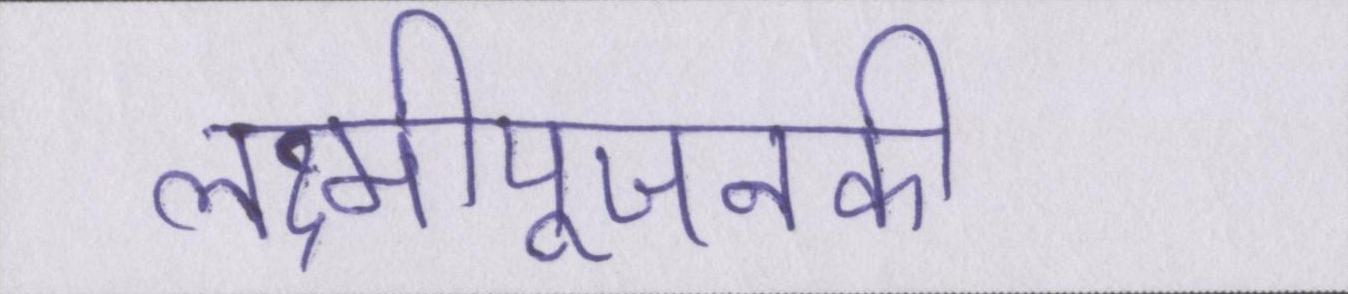 लक्ष्मीपूजनकी